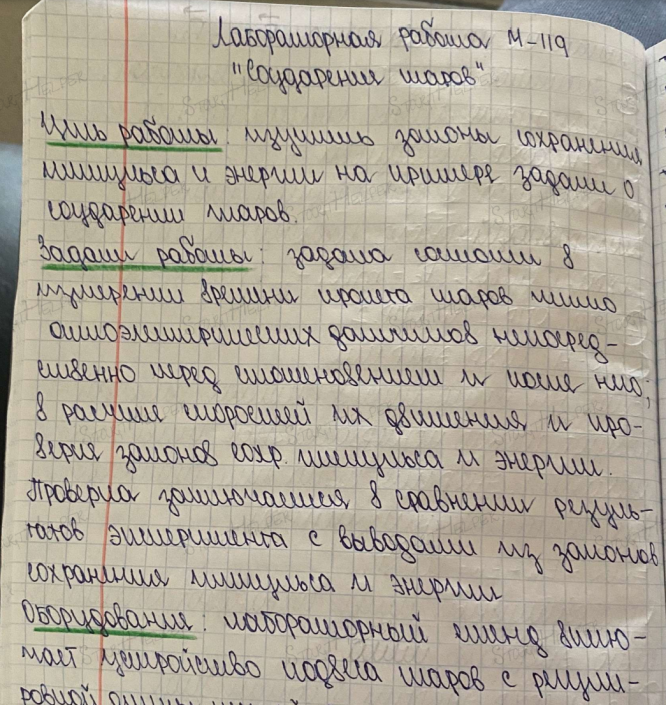 Лабораторная работа М-119
"Соударения шаров"
Цель работы: изучить законы сохранения
импульса и энергии на примере задачи о
соударении шаров.
Задачи работы: задача состоит в
измерении времени пролета шаров мимо
оптоэлектрических датчиков непосред-
ственно перед столкновением и после него;
в расчете скоростей их движения и про-
верка законов сохр. импульса и энергии.
Проверка заключается в сравнении резуль-
татов эксперимента с выводами из законов
сохранения импульса и энергии
Оборудования: лабораторный стенд вклю-
чает устройство подвеса шаров с регули-
ровкой